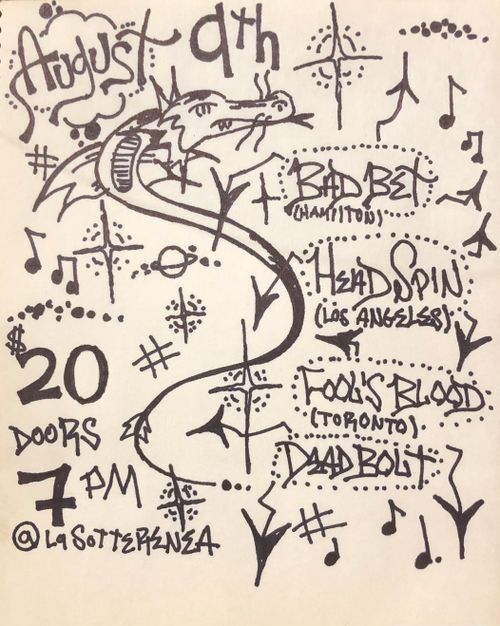 AUGUST 9th
BAD BET
(HAMILTON)
HEAD SPIN
(LOS ANGELES)
FOOL'S BLOOD
(TORONTO)
DEADBOLT
$20
DOORS
7PM
@ La SOTTERENEA